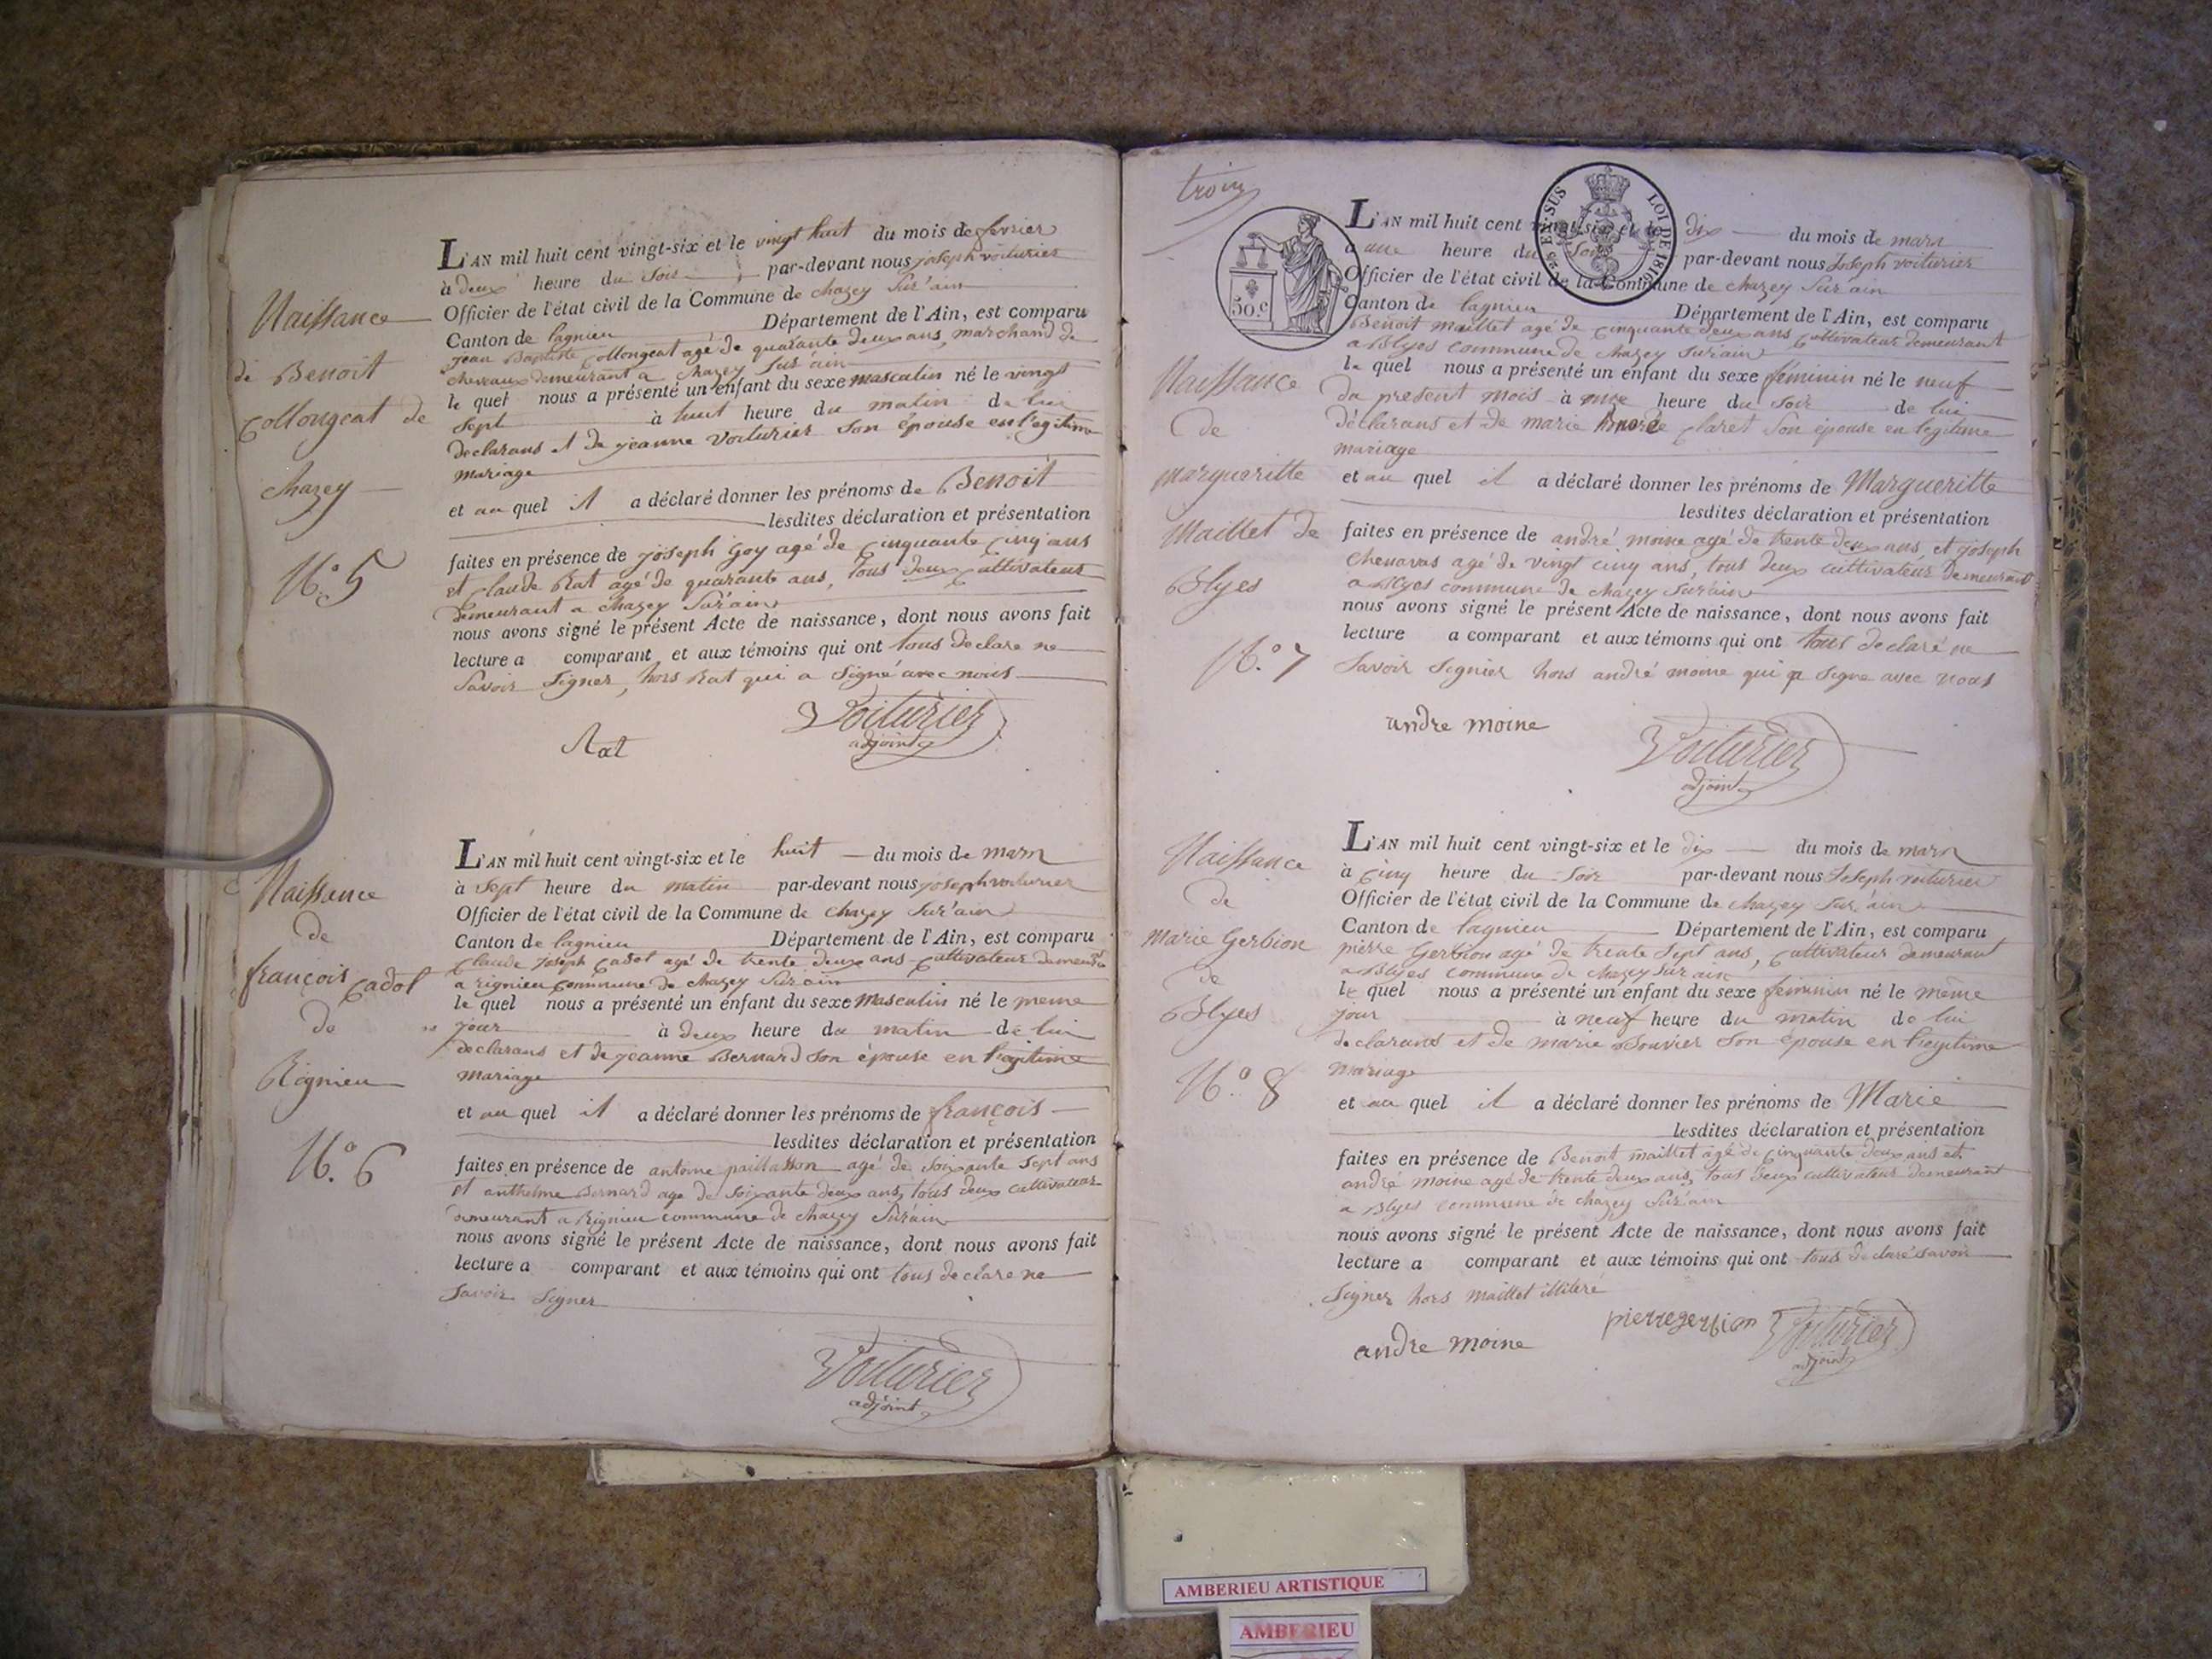 Naissance
de Benoit
Collongeat de
Chazey
N.° 5
L'AN mil huit cent vingt-six et le vingt huit du mois de fevrier
à deux heure du Soir par-devant nous joseph voiturier
Officier de l'état civil de la Commune de chazey Sur'ain
Canton de lagnieu Département de l'Ain, est comparu
jean Baptiste Collongeat agé de quarante deux ans, marchand de
chevaux demeurant a chazey Sur'ain
le quel nous a présenté un enfant du sexe masculin né le vingt
Sept à huit heure du matin de lui
declarans et de jeanne Voiturier Son épouse en legitime
mariage
et au quel il a déclaré donner les prénoms de Benoit
lesdites déclaration et présentation
faites en présence de joseph Goy agé de Cinquante Cinq ans
et Claude Rat agé de quarante ans, tous deux Cultivateur
demeurant a chazey Sur'ain
nous avons signé le présent Acte de naissance, dont nous avons fait
lecture a comparant et aux témoins qui ont tous declare ne
Savoir Signer, hors Rat qui a Signé avec nous
Rat
Voiturier
adjoint
Naissance
de
françois Cadot
de
Rignieu
N.° 6
L'AN mil huit cent vingt-six et le huit du mois de mars
à Sept heure du matin par-devant nous joseph voiturier
Officier de l'état civil de la Commune de chazey Sur'ain
Canton de lagnieu Département de l'Ain, est comparu
Claude joseph Cadot agé de trente deux ans Cultivateur demeurant
a rignieu Commune de chazey Sur'ain
le quel nous a présenté un enfant du sexe masculin né le meme
jour à deux heure du matin de lui
declarans et de jeanne Bernard Son épouse en legitime
mariage
et au quel il a déclaré donner les prénoms de françois
lesdites déclaration et présentation
faites en présence de antoine paillasson agé de Soixante Sept ans
et anthelme Bernard age de Soixante deux ans, tous deux Cultivateur
demeurant a Rignieu commune de chazey Sur'ain
nous avons signé le présent Acte de naissance, dont nous avons fait
lecture a comparant et aux témoins qui ont tous declare ne
Savoir Signer
Voiturier
adjoint
trois
50.c
25 C. EN SUS
LOI DE 1816
Naissance
de
margueritte
Maillet de
Blyes
N.° 7
L'AN mil huit cent vingt-six et le dix du mois de mars
à une heure du Soir par-devant nous Joseph voiturier
Officier de l'état civil de la Commune de chazey Sur ain
Canton de lagnieu Département de l'Ain, est comparu
Benoit maillet agé de Cinquante deux ans Cultivateur demeurant
a Blyes commune de chazey Sur ain
le quel nous a présenté un enfant du sexe féminin né le neuf
du present mois à heure du Soir de lui
déclarans et de marie Claret Son épouse en legitime
mariage
et au quel il a déclaré donner les prénoms de Margueritte
lesdites déclaration et présentation
faites en présence de andré moine agé de trente deux ans, et joseph
Chenavas agé de vingt cinq ans, tous deux cultivateur demeurant
a Blyes commune de chazey Sur'ain
nous avons signé le présent Acte de naissance, dont nous avons fait
lecture a comparant et aux témoins qui ont tous declaré ne
Savoir Signier hors andré moine qui a signe avec nous
andre moine
Voiturier
adjoint
Naissance
de
Marie Gerbion
de
Blyes
N.° 8
L'AN mil huit cent vingt-six et le dix du mois de mars
à Cinq heure du Soir par-devant nous Joseph voiturier
Officier de l'état civil de la Commune de chazey Sur ain
Canton de lagnieu Département de l'Ain, est comparu
pierre Gerbion agé de trente Sept ans, Cultivateur demeurant
a Blyes commune de chazey Sur ain
le quel nous a présenté un enfant du sexe féminin né le même
jour à neuf heure du matin de lui
declarans et de marie Bouvier Son epouse en legitime
mariage
et au quel il a déclaré donner les prénoms de Marie
lesdites déclaration et présentation
faites en présence de Benoit maillet agé de Cinquante deux ans et
andré moine agé de trente deux ans, tous deux cultivateur demeurant
a Blyes commune de chazey Sur'ain
nous avons signé le présent Acte de naissance, dont nous avons fait
lecture a comparant et aux témoins qui ont tous declaré savoir
Signer hors maillet illiteré
andre moine
pierre gerbion
Voiturier
adjoint
AMBERIEU ARTISTIQUE
AMBERIEU